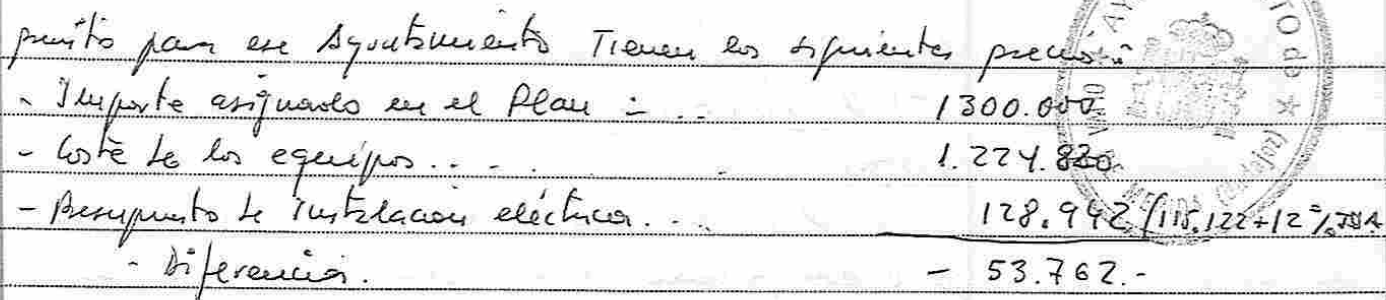 para ese Ayuntamiento Tienen los siguientes precios:
- Importe asignado en el Plan : .. 1300.000
- Coste de los equipos.... 1.224.820
- Presupuesto de instalación eléctrica... 128.942 (115.122+12% IVA
- Diferencia. - 53.762.-
MERIDA (Badajoz)